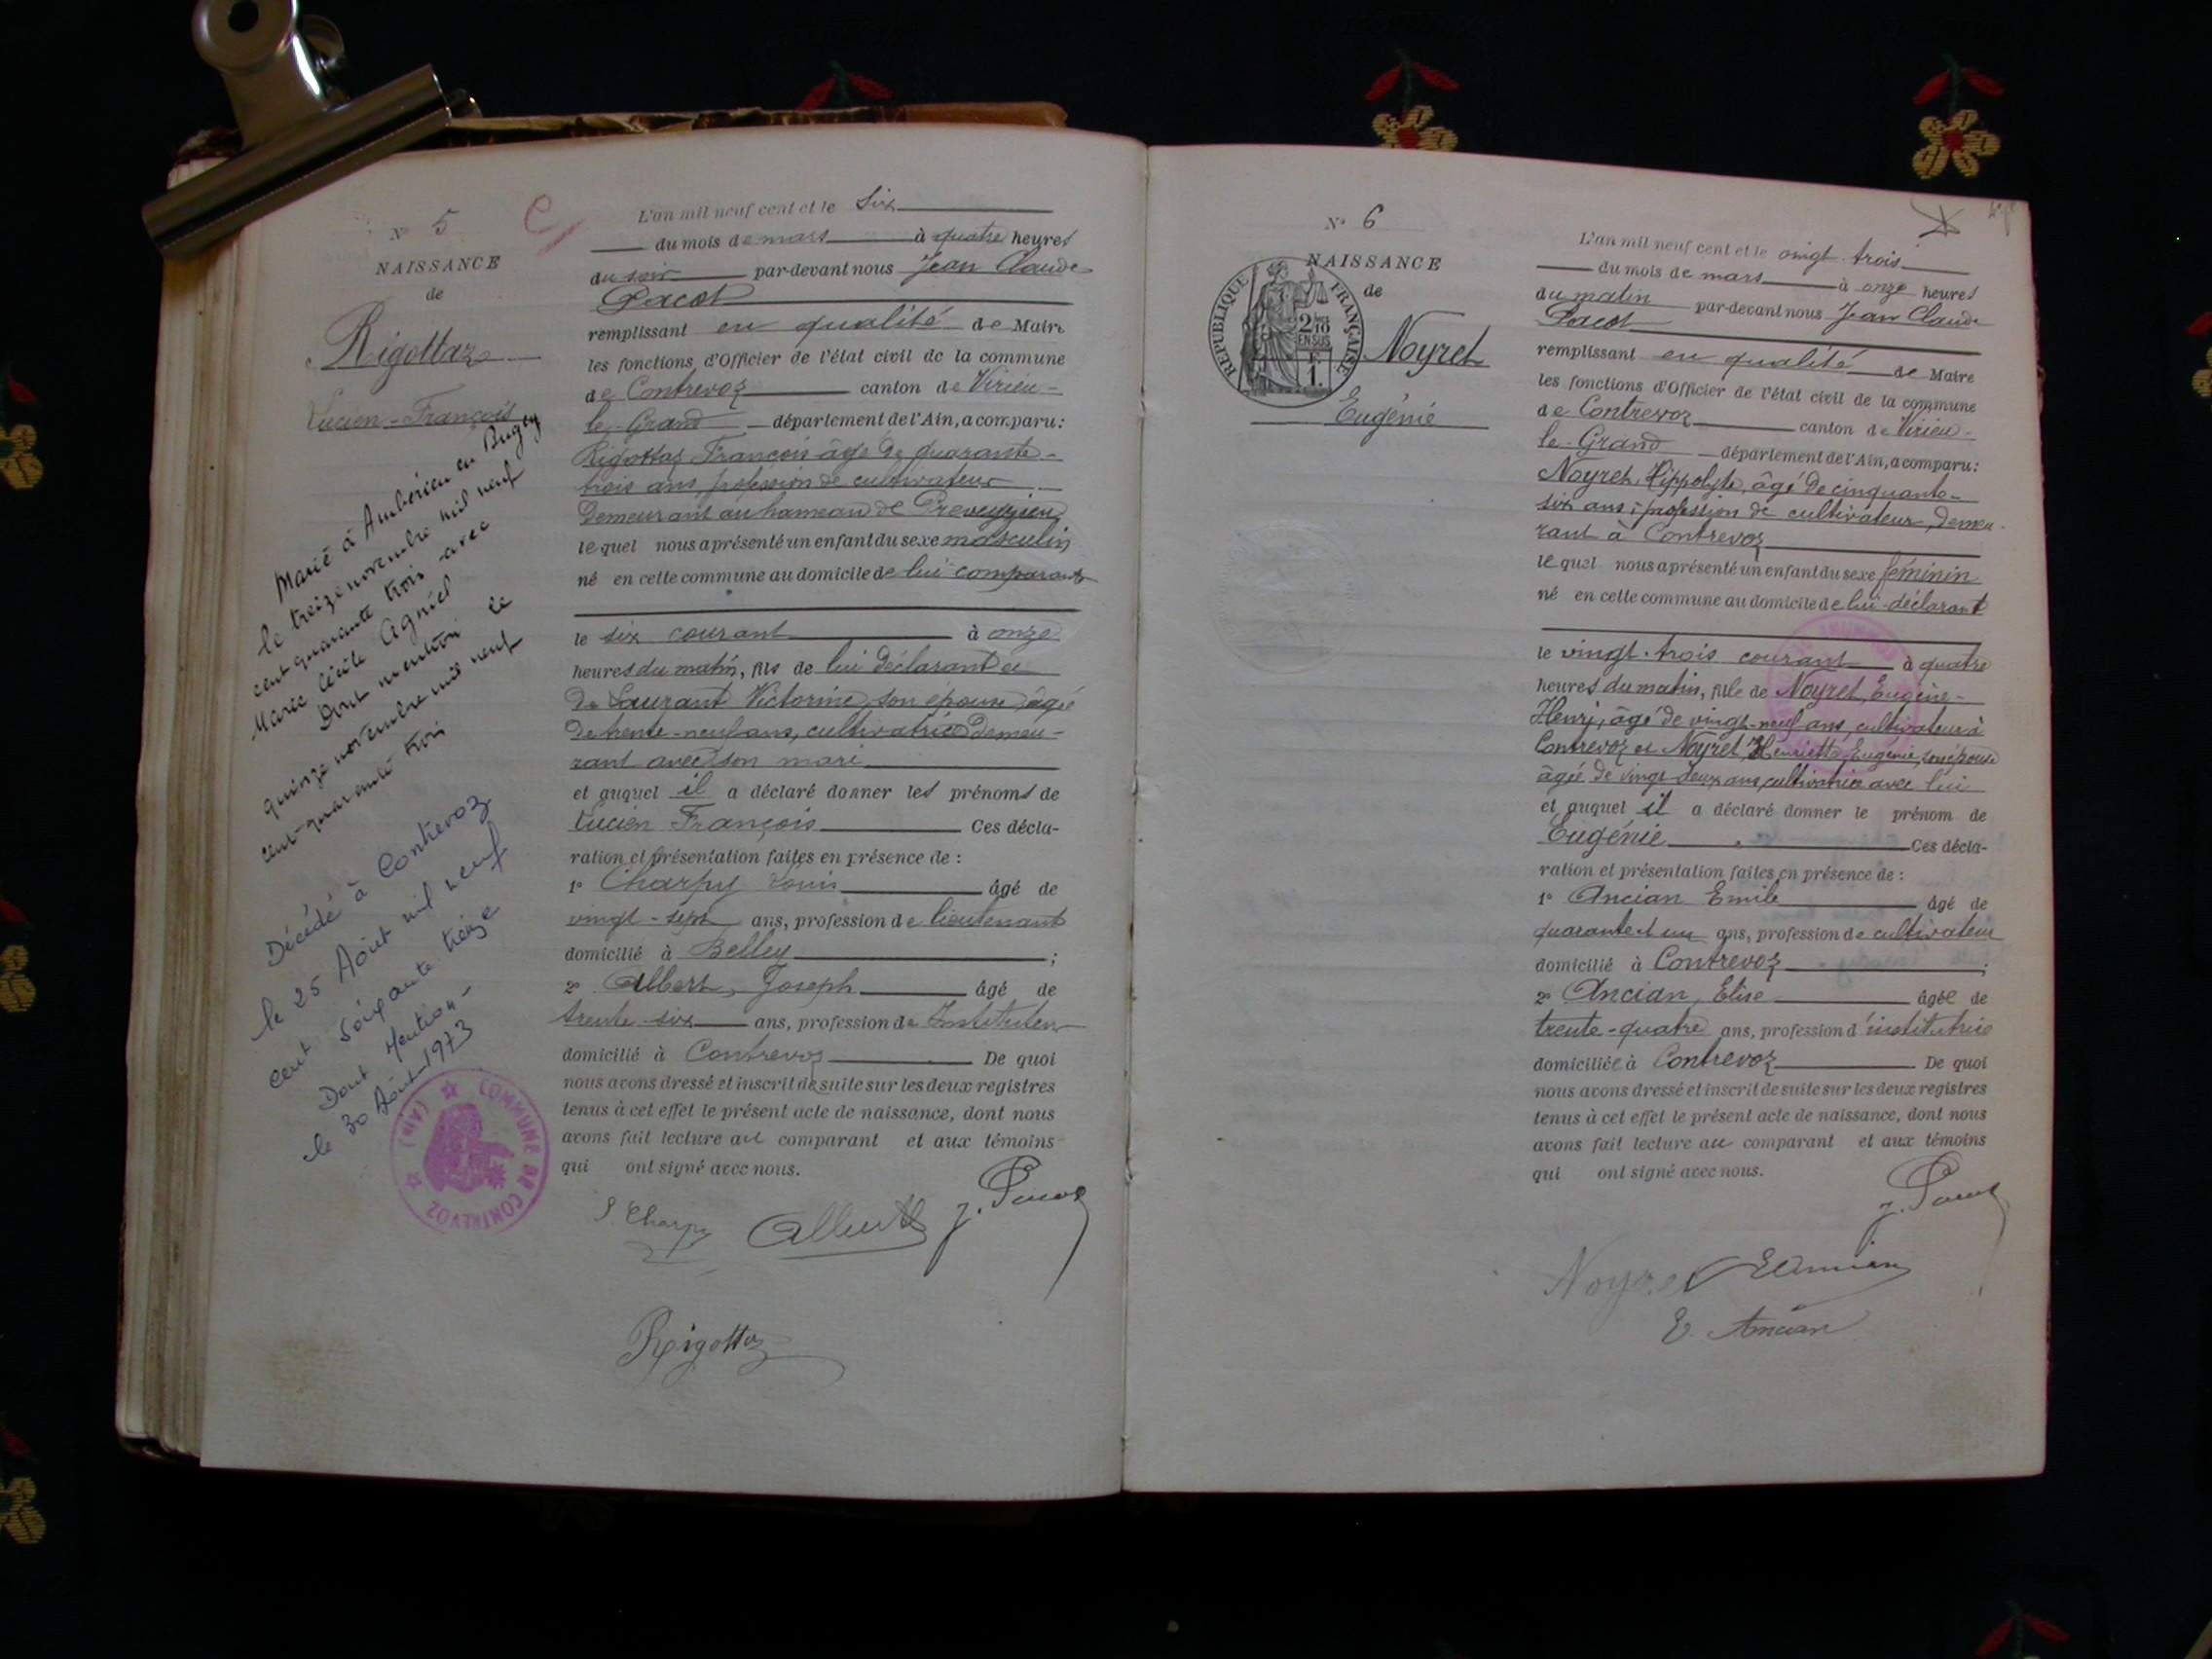 N° 5
NAISSANCE
de
Rigottaz
Lucien-François
Marié à Ambérieu en Bugey
le treize novembre mil neuf
cent quarante trois avec
Marie Cécile Agniel
Dont mention le
quinze novembre mil neuf
cent quarante trois
Décédé à Contrevoz
le 25 Août mil neuf
cent soixante treize
Dont Mention -
le 30 Août 1973
COMMUNE DE CONTREVOZ (AIN)
L'an mil neuf cent et le six
du mois de mars à quatre heures
du soir par-devant nous Jean Claude
Pacot
remplissant en qualité de Maire
les fonctions d'Officier de l'état civil de la commune
de Contrevoz canton de Virieu-
le-Grand département de l'Ain, a comparu:
Rigottaz François âgé de quarante-
trois ans, profession de cultivateur
demeurant au hameau de Preveyzieu
lequel nous a présenté un enfant du sexe masculin
né en cette commune au domicile de lui comparant
le six courant à onze
heures du matin, fils de lui déclarant et
de Laurant Victorine son épouse, âgée
de trente-neuf ans, cultivatrice demeu-
rant avec son mari
et auquel il a déclaré donner les prénoms de
Lucien François Ces décla-
ration et présentation faites en présence de :
1° Charpy Louis âgé de
vingt-sept ans, profession de lieutenant
domicilié à Belley ;
2° Albert, Joseph âgé de
trente-six ans, profession de Instituteur
domicilié à Contrevoz De quoi
nous avons dressé et inscrit de suite sur les deux registres
tenus à cet effet le présent acte de naissance, dont nous
avons fait lecture au comparant et aux témoins
qui ont signé avec nous.
L. Charpy Albert J. Pacot
Rigottaz
N° 6
NAISSANCE
de
REPUBLIQUE FRANÇAISE
2/10
EN SUS
F.
1.
Noyret
Eugénie
L'an mil neuf cent et le vingt-trois
du mois de mars à onze heures
du matin par-devant nous Jean Claude
Pacot
remplissant en qualité de Maire
les fonctions d'Officier de l'état civil de la commune
de Contrevoz canton de Virieu-
le-Grand département de l'Ain, a comparu:
Noyret, Hippolyte, âgé de cinquante-
six ans, profession de cultivateur, demeu-
rant à Contrevoz
lequel nous a présenté un enfant du sexe féminin
né en cette commune au domicile de lui-déclarant
le vingt-trois courant à quatre
heures du matin, fille de Noyret, Eugène-
Henri, âgé de vingt-neuf ans, cultivateur à
Contrevoz et Noyret Henriette Eugénie, son épouse
âgée de vingt-deux ans, cultivatrice avec lui
et auquel il a déclaré donner le prénom de
Eugénie Ces décla-
ration et présentation faites en présence de :
1° Ancian Emile âgé de
quarante et un ans, profession de cultivateur
domicilié à Contrevoz ;
2° Ancian, Elise âgée de
trente-quatre ans, profession d'institutrice
domiciliée à Contrevoz. De quoi
nous avons dressé et inscrit de suite sur les deux registres
tenus à cet effet le présent acte de naissance, dont nous
avons fait lecture au comparant et aux témoins
qui ont signé avec nous.
J. Pacot
Noyret E Ancian
E. Ancian